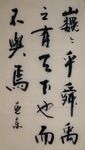 巍巍乎舜禹
之有天下也而
不與焉